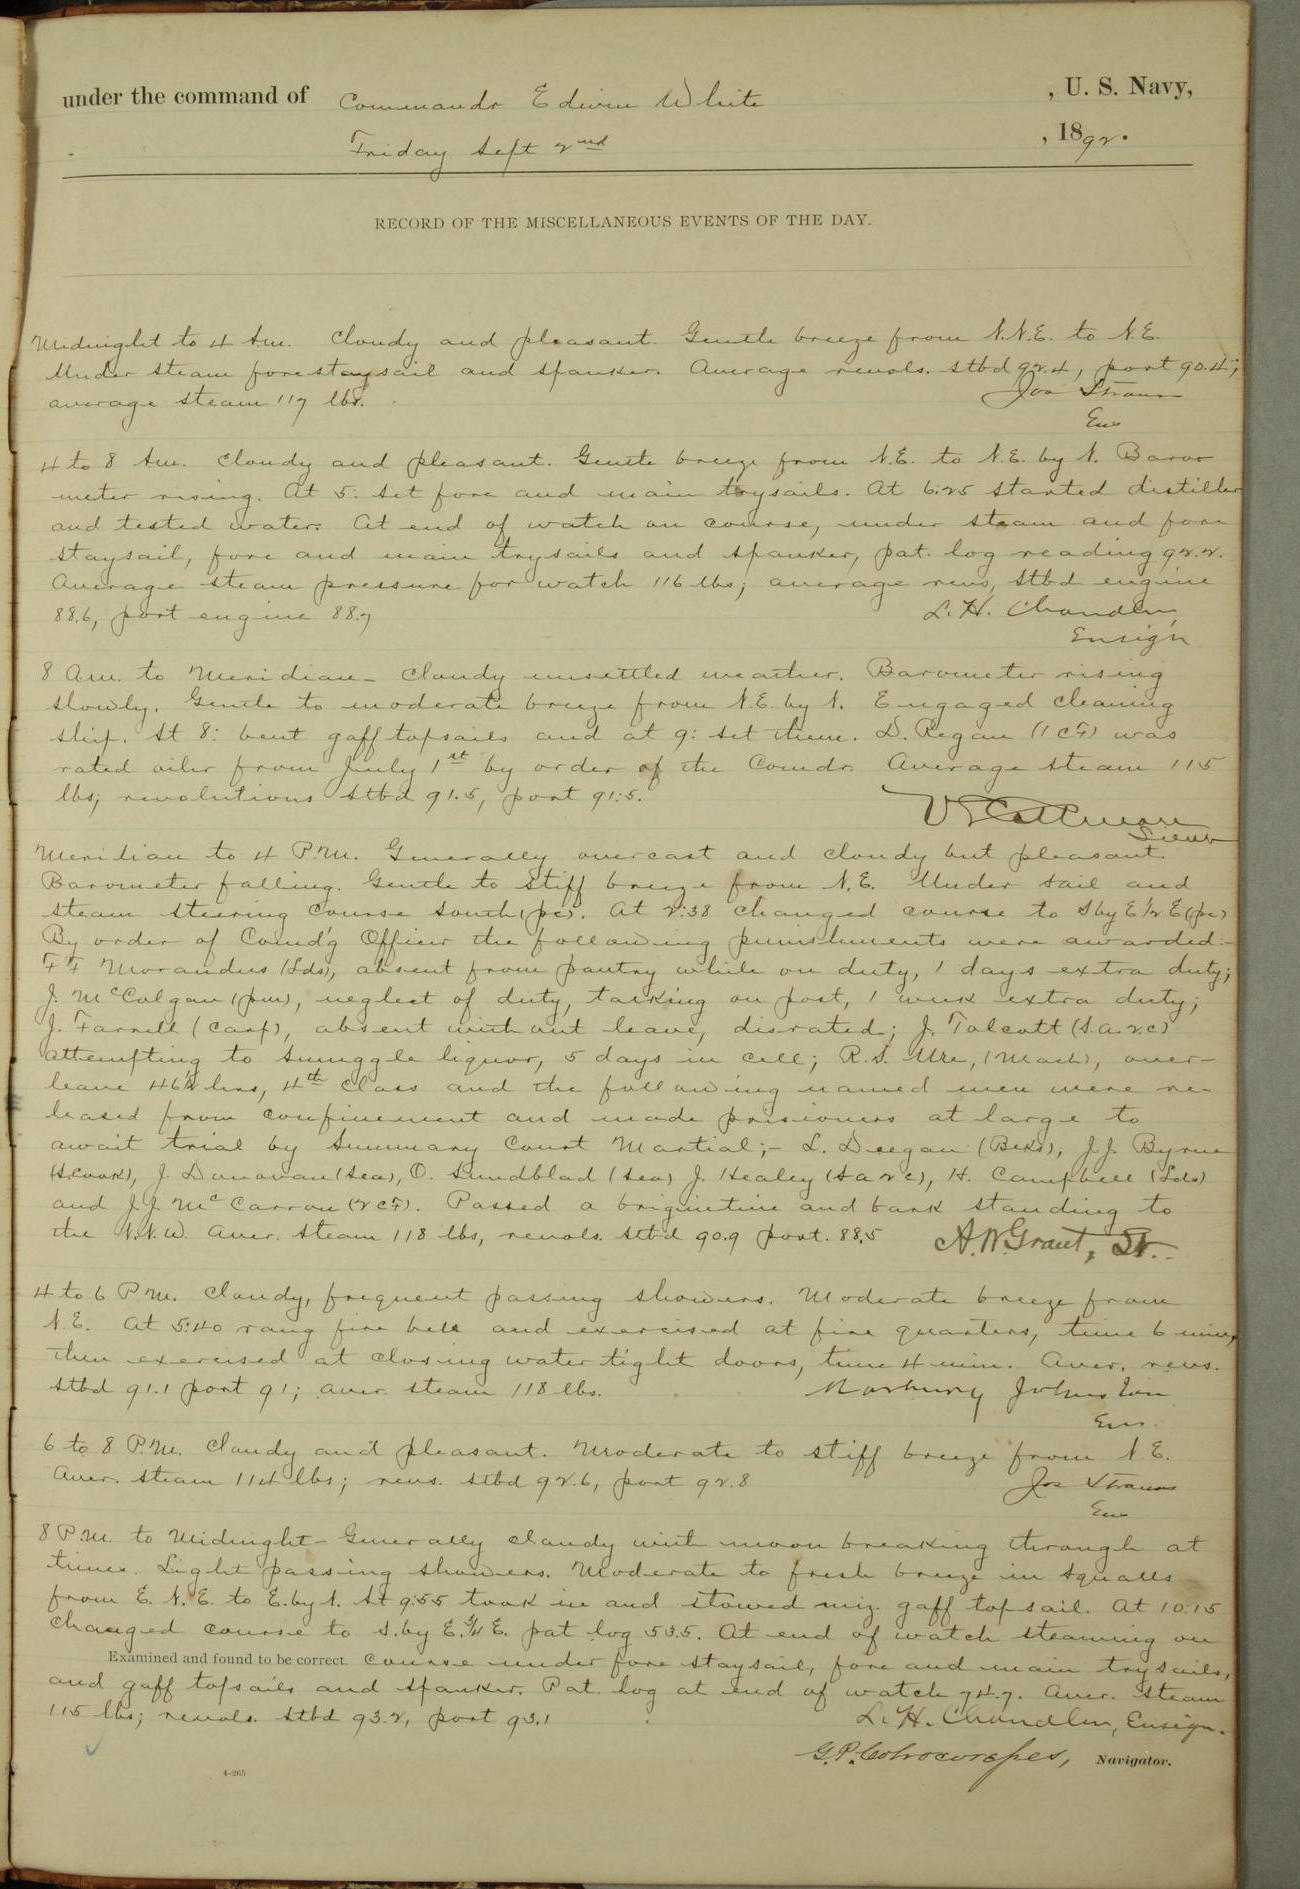 under the command of Commandr Edwin White , U. S. Navy,
Friday Sept 2nd , 1892.
RECORD OF THE MISCELLANEOUS EVENTS OF THE DAY.
Midnight to 4 Am. Cloudy and pleasant. Gentle breeze from N.N.E. to N.E.
Under steam forestaysail and spanker. Average revols. stbd 92.4, port 90.4;
average steam 117 lbs. Jos Strauss
Ens
4 to 8 Am. Cloudy and pleasant. Gentle breeze from N.E. to N.E. by N. Baro-
meter rising. At 5: set fore and main trysails. At 6:25 started distiller
and tested water. At end of watch on course, under steam and fore
staysail, fore and main trysails and spanker, pat. log reading 92.2.
Average steam pressure for watch 116 lbs; average revs, stbd engine
88.6, port engine 88.7 L. H. Chandler,
Ensign
8 Am. to Meridian - Cloudy unsettled weather. Barometer rising
slowly. Gentle to moderate breeze from N.E. by N. Engaged cleaning
ship. At 8: bent gaff topsails and at 9: set them. D. Regan (1 cF) was
rated oiler from July 1st by order of the Comdr. Average steam 115
lbs; revolutions stbd 91.5, port 91.5.
Lieut
Meridian to 4 P.M. Generally overcast and cloudy but pleasant.
Barometer falling. Gentle to stiff breeze from N.E. Under sail and
steam steering course South (pc). At 2:38 changed course to S by E 1/2 E (pc)
By order of Comd'g Officer the following punishments were awarded:-
F F Morandus (Lds), absent from pantry while on duty, 1 days extra duty;
J. McColgan (pm), neglect of duty, talking on post, 1 week extra duty;
J. Farrell (Carp), absent without leave, disrated; J. Talcott (S.a.2.c)
attempting to smuggle liquor, 5 days in cell; R.S. Ure, (Mach), over-
leave 46 1/2 hrs, 4th class and the following named men were re-
leased from confinement and made prisioners at large to
await trial by Summary Court Martial;- L. Deegan (Bkr), J.J. Byrne
(S.cook), J. Donovan (Sea), O. Sundblad (Sea) J. Healey (S a 2 c), H. Campbell (Lds)
and J.J. McCarron (2 cF). Passed a brigintine and bark standing to
the N.N.W. Aver. steam 118 lbs, revols. stbd 90.9 port. 88.5 A. W. Grant, Lt.
4 to 6 P.M. Cloudy, frequent passing showers. Moderate breeze from
N.E. At 5:40 rang fire bell and exercised at fire quarters, time 6 min,
then exercised at closing water tight doors, time 4 min. Aver. revs.
stbd 91.1 port 91; aver. steam 118 lbs. Marbury Johnston
Ens.
6 to 8 P.M. Cloudy and pleasant. Moderate to stiff breeze from N.E.
Aver. steam 114 lbs; revs. stbd 92.6, port 92.8 Jos Strauss
Ens
8 P.M. to Midnight - Generally cloudy with moon breaking through at
times. Light passing showers. Moderate to fresh breeze in squalls
from E.N.E. to E. by N. At 9:55 took in and stowed miz. gaff topsail. At 10:15
changed course to S. by E. 3/4 E. pat log 53.5. At end of watch steaming on
Examined and found to be correct. course under fore staysail, fore and main trysails,
and gaff topsails and spanker. Pat. log at end of watch 74.7. Aver. steam
115 lbs; revols. stbd 93.2, port 93.1 L. H. Chandler, Ensign.
G. P. Colvocoresses, Navigator.
4-265